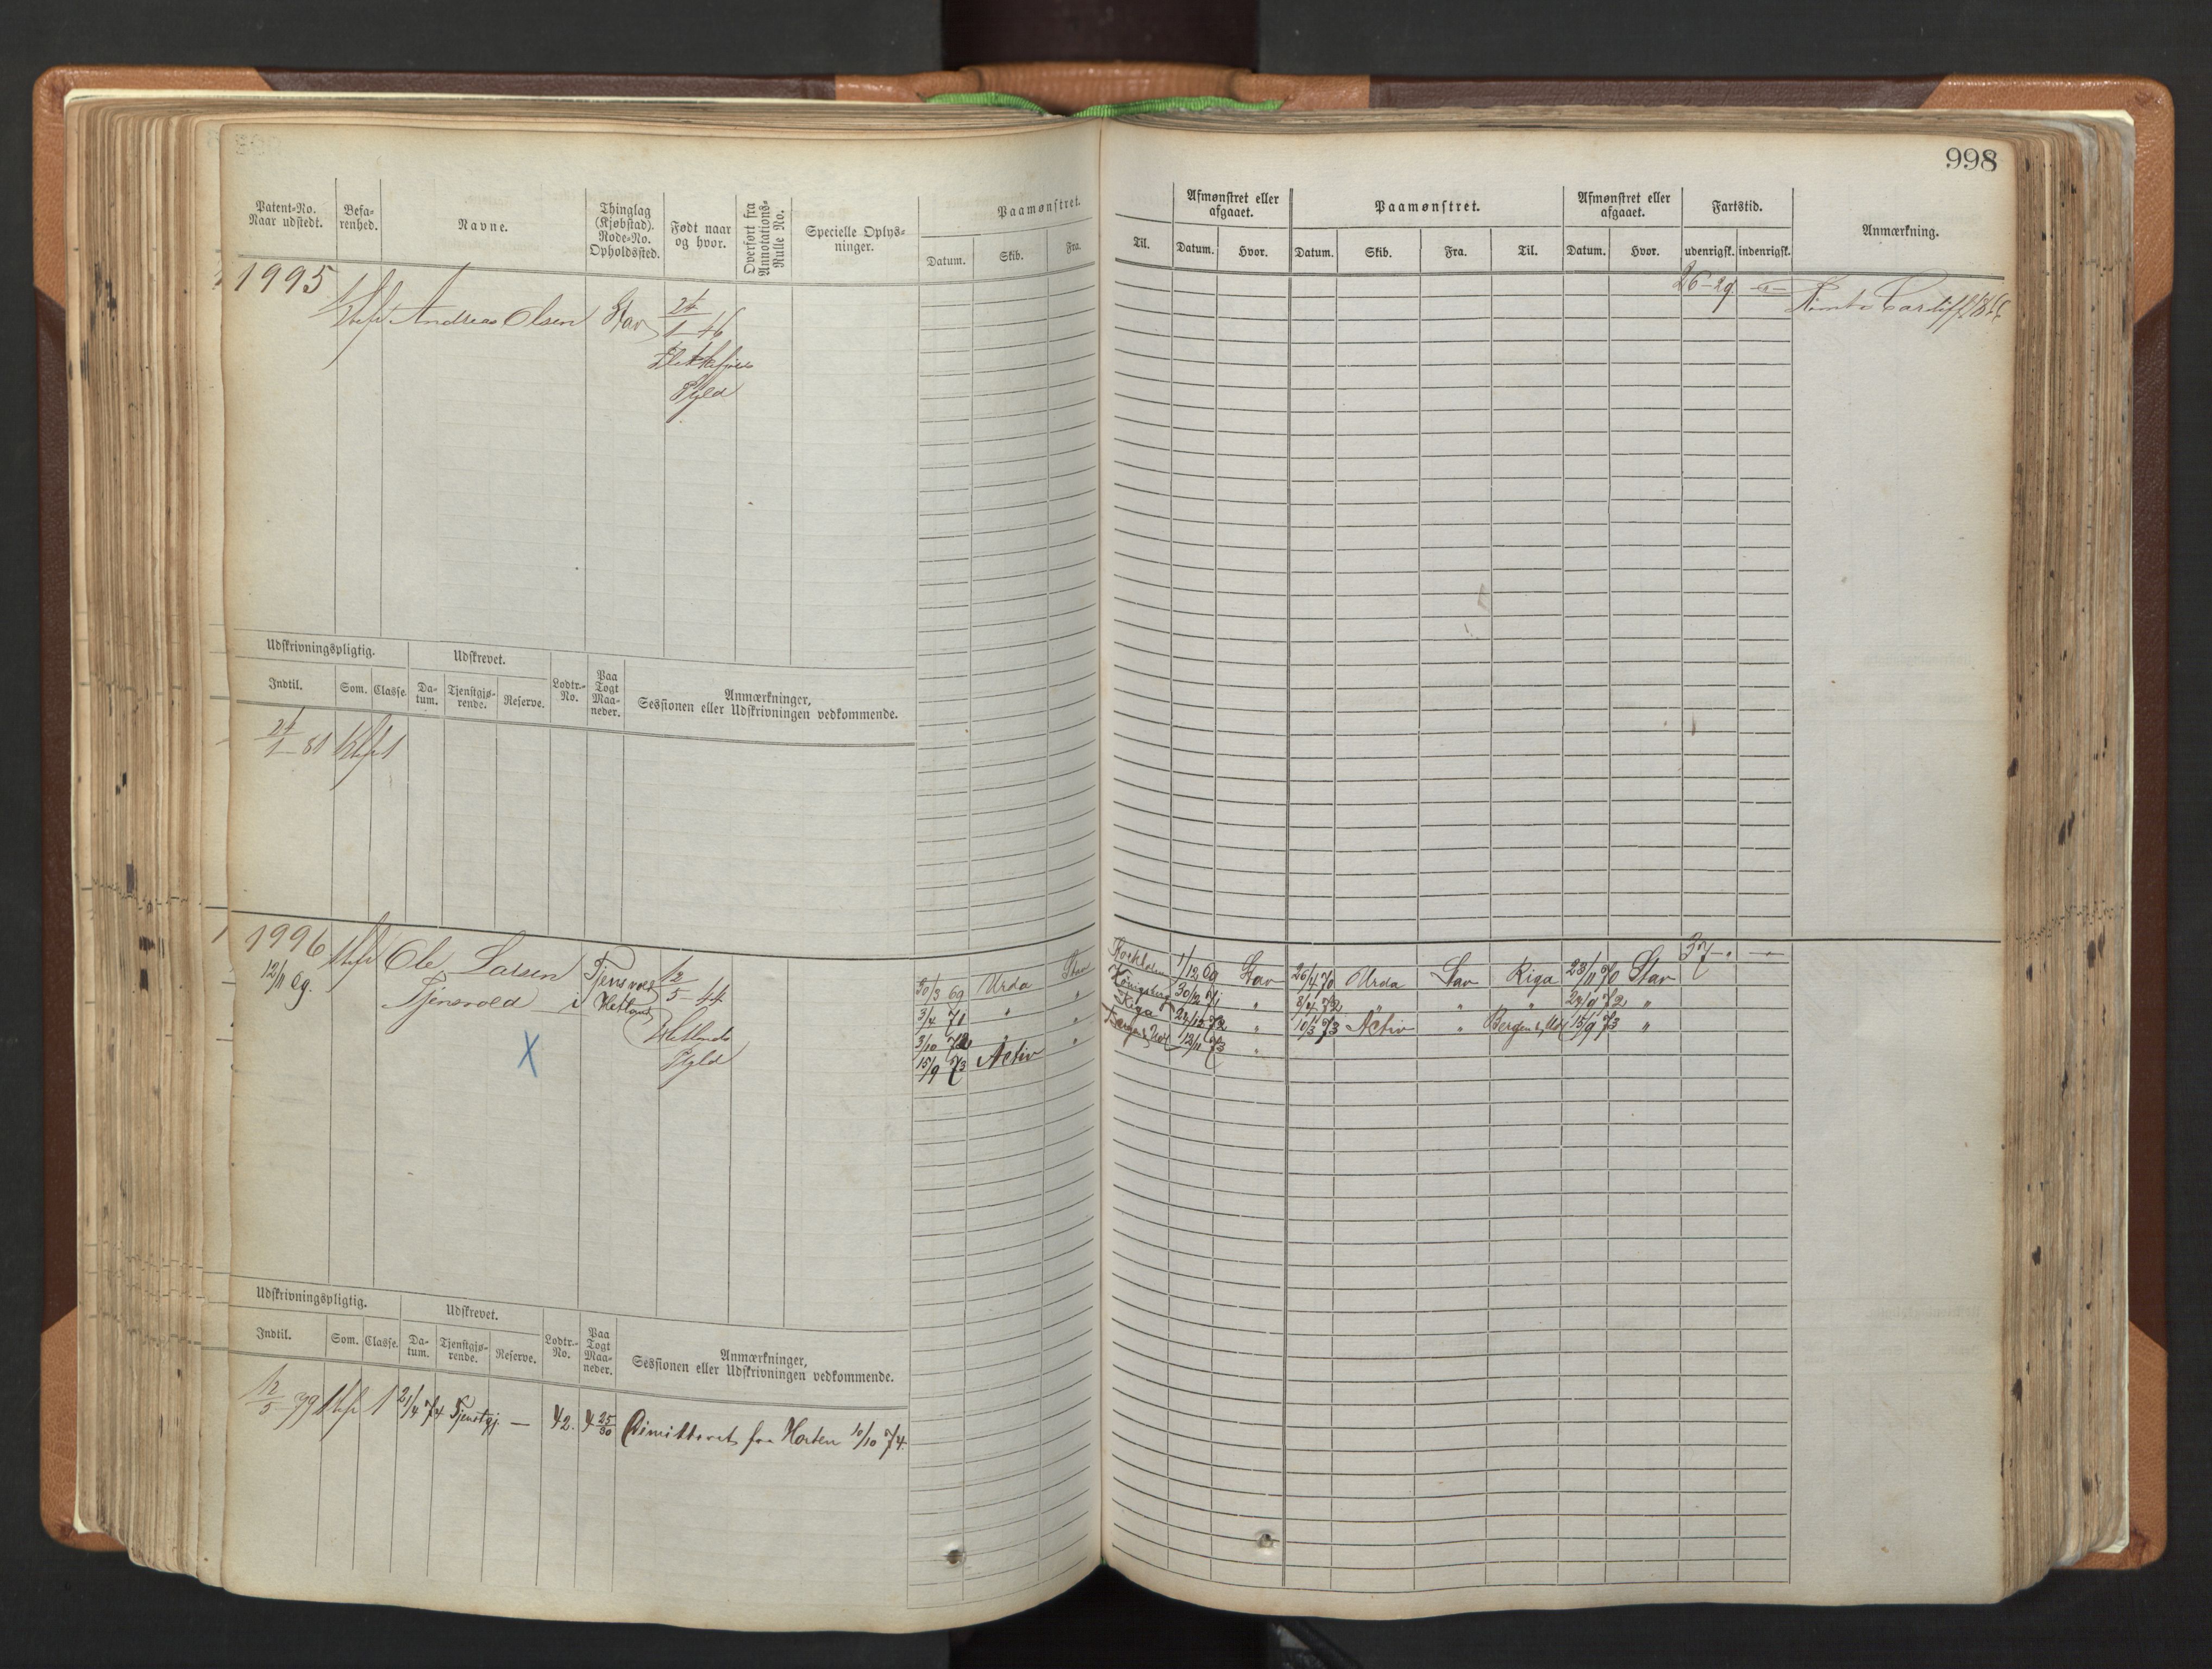 998
Patent-No. Naar udstedt. Befarenhed. Navne. Thinglag (Kjøbstad). Rode-No. Opholdssted. Født naar og hvor. Overført fra Annotations-Rulle No. Specielle Oplysninger. Paamønstret. Datum. Skib. Fra.
Til. Afmønstret eller afgaaet. Datum. Hvor. Paamønstret. Datum. Skib. Fra. Til. Afmønstret eller afgaaet. Datum. Hvor. Fartstid. udenrigsk. indenrigsk. Anmærkning.
1995
Andreas Olsen Stav 24/1 46
Flekkefjords
Pgld
26-29
Rømt i Cardiff
Udskrivningspligtig. Udskrevet. Lodtr.-No. Paa Togt Maaneder. Anmærkninger, Sessionen eller Udskrivningen vedkommende.
Indtil. Som. Classe. Datum. Tjenstgjørende. Reserve.
24/1 81 1
1996
12/11 69.
Ole Larsen
Tjensvold
Tjensvold
i Hetland
12/5 44
Hetlands
Pgld
X
30/3 69 Urda Stav Stockholm 1/12 69 Stav 26/4 70 Urda Stav Riga 23/11 70 Stav 37 - " -
3/4 71 " " Königsberg 30/12 71 " 8/4 72 " " " 24/9 72 "
3/10 72 " " Riga 24/12 72 " 10/3 73 Activ " Bergen & 15/9 73 "
15/9 73 Activ " Bergen & 12/11 73 "
Udskrivningspligtig. Udskrevet. Lodtr.-No. Paa Togt Maaneder. Anmærkninger, Sessionen eller Udskrivningen vedkommende.
Indtil. Som. Classe. Datum. Tjenstgjørende. Reserve.
12/5 79 1 21/4 74 Tjenstgj. — 42. 4 25/30 Dimitteret fra Horten 10/10 74.